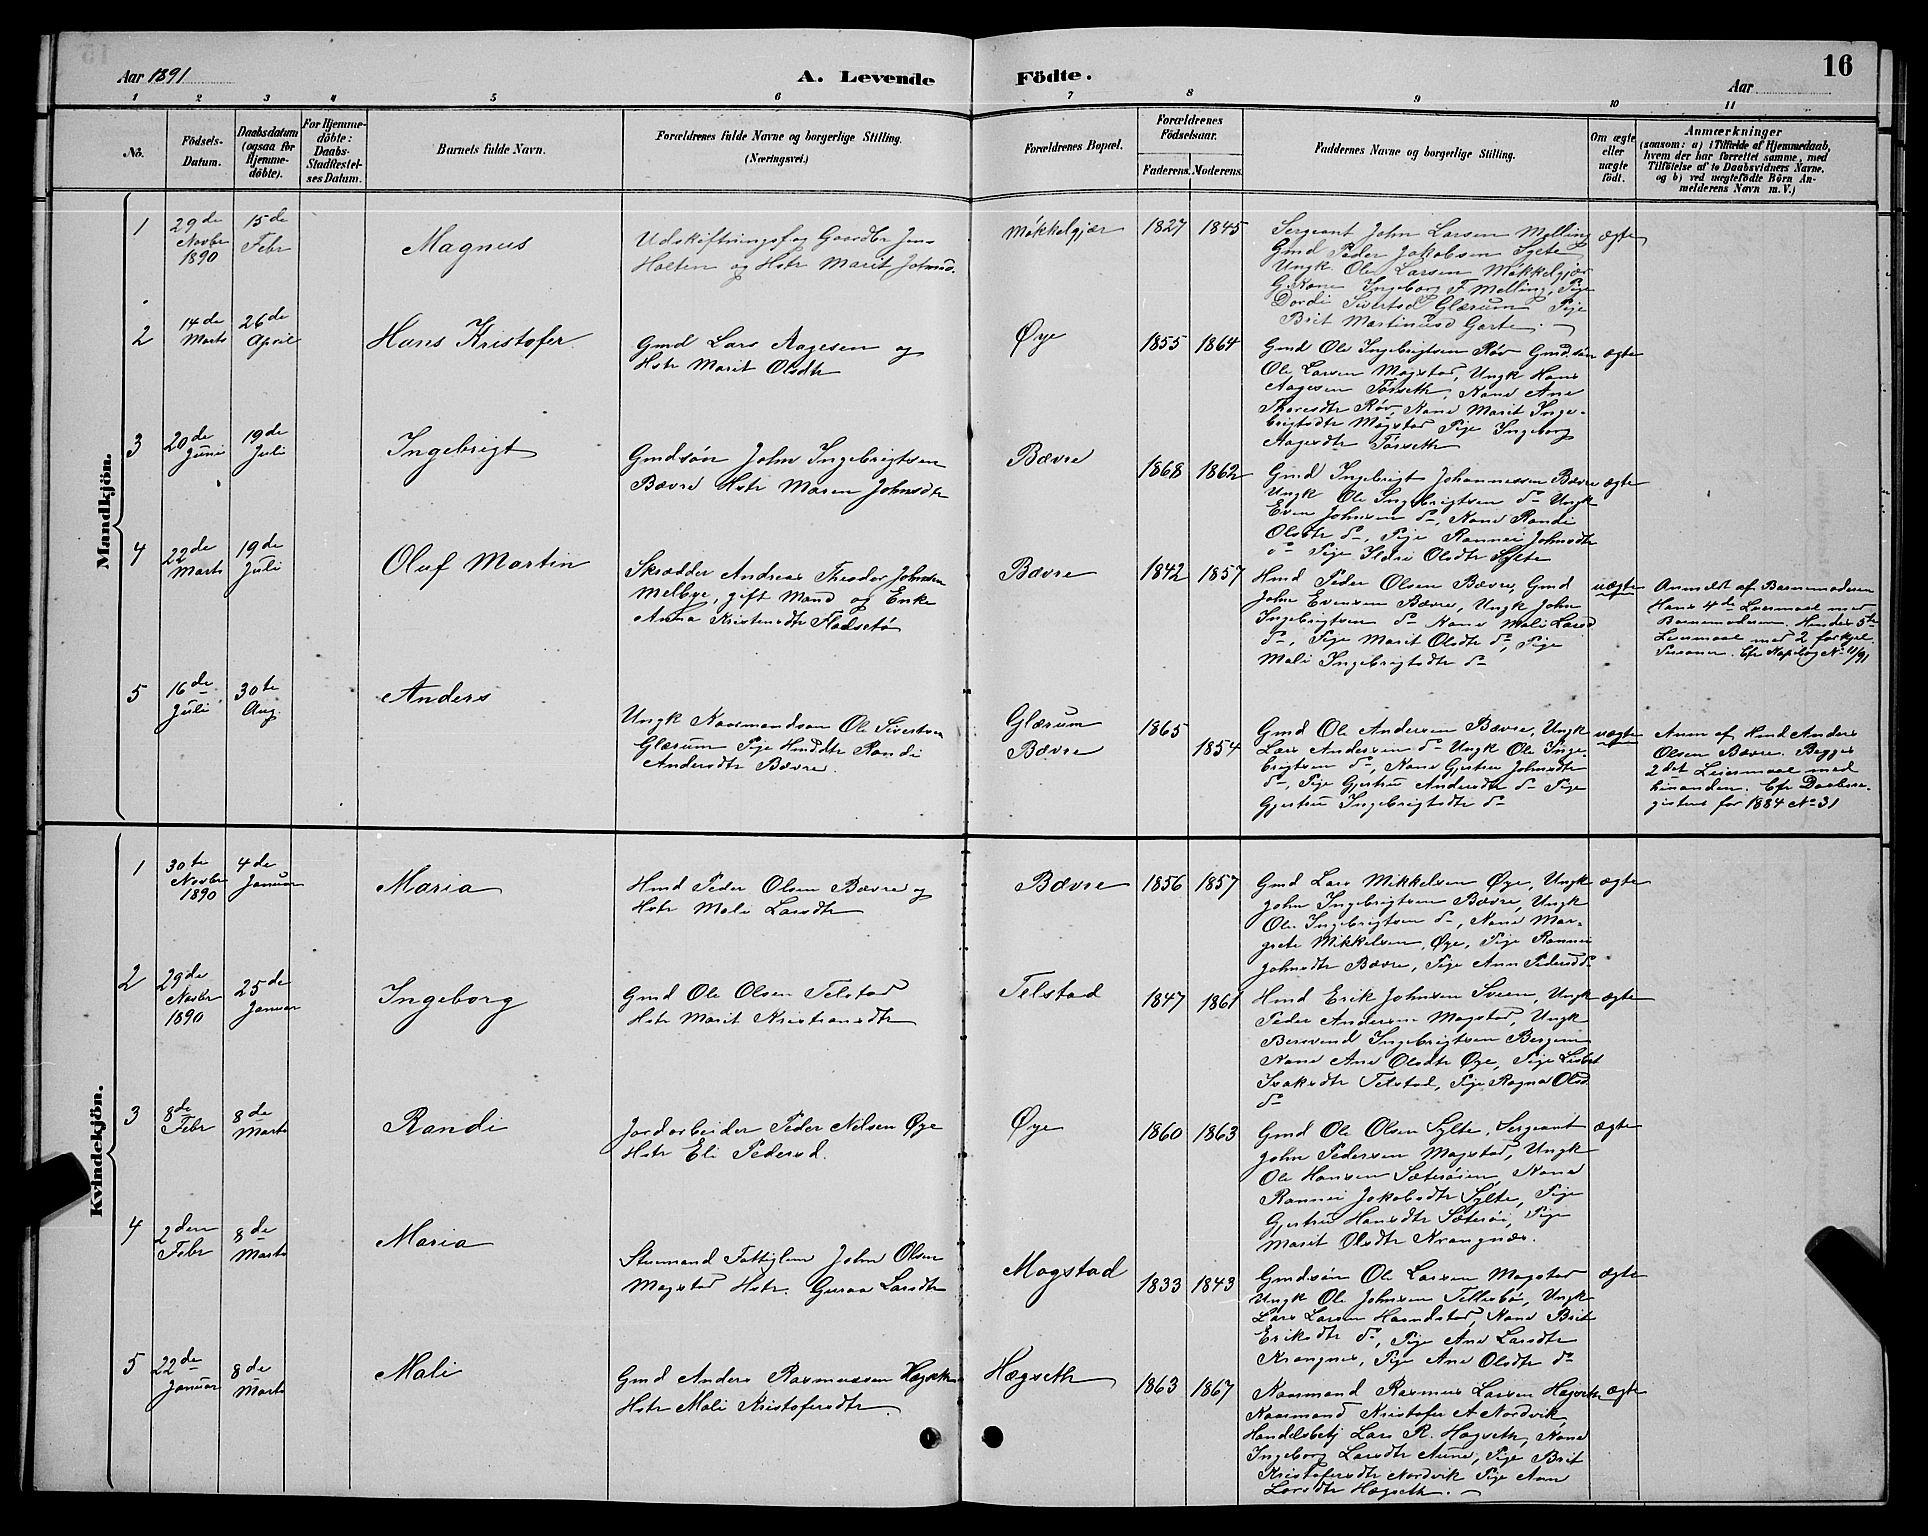 Aar 1891
A. Levende
Födte.
Aar
16
1
2
3
4
5
6
7
8
9
10
11
No.
Födsels-
Datum.
Daabsdatum
(ogsaa for
Hjemme-
döbte).
For Hjemme-
döbte:
Daabs-
Stadfæstel-
ses Datum.
Barnets fulde Navn.
Forældrenes fulde Navne og borgerlige Stilling.
(Næringsvei.)
Forældrenes Bopæl.
Forældrenes
Födselsaar.
Faderens.
Moderens.
Faddernes Navne og borgerlige Stilling.
Om ægte
eller
uægte
födt.
Anmærkninger
(saasom: a) i Tilfælde af Hjemmedaab,
hvem der har forrettet samme, med
Tilföielse af to Daabsvidners Navne,
og b) ved uægtefödte Börn An-
melderens Navn m. V.)
Mandkjön.
1
29de
Novbr
1890
15de
Febr
Magnus
Udskiftningsf og Gaardbr Jens
Holten og Hstr Marit Johnsd.
Møkkelgjær
1827
1845
Sergeant John Larsen Melling
Gmd Peder Jakobsen Sylte
Ungk. Ole Larsen Møkkelgjær
G. Kone Ingeborg F Melling, Pige
Dordi Sivertsd Glærum Pige
Brit Martinusd Garte.
ægte
2
14de
Marts
26de
April
Hans Kristofer
Gmd Lars Aagesen og
Hstr Marit Olsdtr
Øye
1855
1864
Gmd Ole Ingebrigtsen Røv Gmdsøn
Ole Larsen Magstad, Ungk Hans
Aagesen Tørseth, Kone Ane
Thoresdtr Røv, Kone Marit Inge-
brigtsdtr Magstad Pige Ingeborg
Aagesdtr Tørseth
ægte
3
20de
Juni
19de
Juli
Ingebrigt
Gmdsøn John Ingebrigtsen
Bævre Hstr Maren Johnsdtr
Bævre
1868
1862
Gmd Ingebrigt Johannessen Bævre
Ungk Ole Ingebrigtsen do Ungk
Even Johnsen do, Kone Randi
Olsdtr do, Pige Rannei Johnsdtr
do Pige Ildri Olsdtr Sylte
ægte
4
22de
Marts
19de
Juli
Oluf Martin
Skrædder Andreas Theodor Johnsen
Melbye, gift Mand og Enke
Anna Kristensdtr Fladsetø
Bævre
1842
1857
Hmd Peder Olsen Bævre, Gmd
John Evensen Bævre, Ungk John
Ingebrigtsen do Kone Mali Larsd
do, Pige Marit Olsdtr do, Pige
Mali Ingebrigtsdtr do
uægte
Anmeldt af Barnemoderen
Hans 4de Leiermaal med
Barnemoderen. Hendes 5te
Leiermaal med 2 forskjel.
Personer. Cfr Kopibog No 11/91
5
16de
Juli
30te
Aug.
Anders
Ungk Naasmandsøn Ole Sivertsen
Glærum Pige Hmddtr Randi
Andersdtr Bævre.
Glærum
Bævre
1865
1854
Gmd Ole Andersen Bævre, Ungk
Lars Andersen do Ungk Ole Inge-
brigtsen do, Kone Gjertru Johnsdtr
do, Pige Gjertru Andersdtr do Pige
Gjertru Ingebrigtsdtr do
uægte
Anm af Hmd Anders
Olsen Bævre. Begges
2det Leiermaal med
hinanden. Cfr Daabsre-
gisteret for 1884 No 31
Kvindekjön.
1
30te
Novbr
1890
4de
Januar
Maria
Hmd Peder Olsen Bævre og
Hstr Mali Larsdtr
Bævre
1856
1857
Gmd Lars Mikkelsen Øye, Ungk
John Ingebrigtsen Bævre, Ungk
Ole Ingebrigtsen do, Kone Mar-
grete Mikkelsen, Øye, Pige Rannei
Johnsdtr Bævre, Pige Ann Pedersd do
ægte
2
29de
Novbr
1890
25de
Januar
Ingeborg
Gmd Ole Olsen Telstad
Hstr Marit Kristiansdtr
Telstad
1847
1861
Hmd Erik Johnsen Sveen, Ungk
Peder Andersen Magstad, Ungk
Bersvend Ingebrigtsen Bergem
Kone Ane Olsdtr Øye, Pige Lisbet
Isaksdtr Telstad, Pige Ragna Olsd.
do
ægte
3
8de
Febr
8de
Marts
Randi
Jordarbeider Peder Nilsen Øye
Hstr Eli Pedersd.
Øye
1860
1863
Gmd Ole Olsen Sylte, Sergeant
John Pedersen Magstad, Ungk
Ole Hansen Sæterøien, Kone
Rannei Jakobsdtr Sylte, Pige
Gjertru Hansdtr Sæterøi, Pige
Marit Olsdtr Krangnæs.
ægte
4
2den
Febr
8de
Marts
Maria
Stuemand Fattiglem John Olsen
Magstad Hstr. Guroa Larsdtr
Magstad
1833
1843
Gmdsøn Ole Larsen Magstad
Ungk Ole Johnsen Tellesbø, Ungk
Lars Larsen Harndstad, Kone Brit
Eriksdtr do, Pige Ane Larsdtr
Krangnes, Pige Ane Olsdtr do
ægte
5
22de
Januar
8de
Marts
Mali
Gmd Anders Rasmussen Hægseth
Hstr Mali Kristofersdtr.
Hægseth
1863
1867
Naasmand Rasmus Larsen Hægseth
Naasmand Kristofer A Nordvik,
Handelsbetj Lars R. Hægseth, Kone
Ingeborg Larsdtr Aune, Pige Brit
Kristofersdtr Nordvik Pige Ann
Larsdtr Hægseth.
ægte